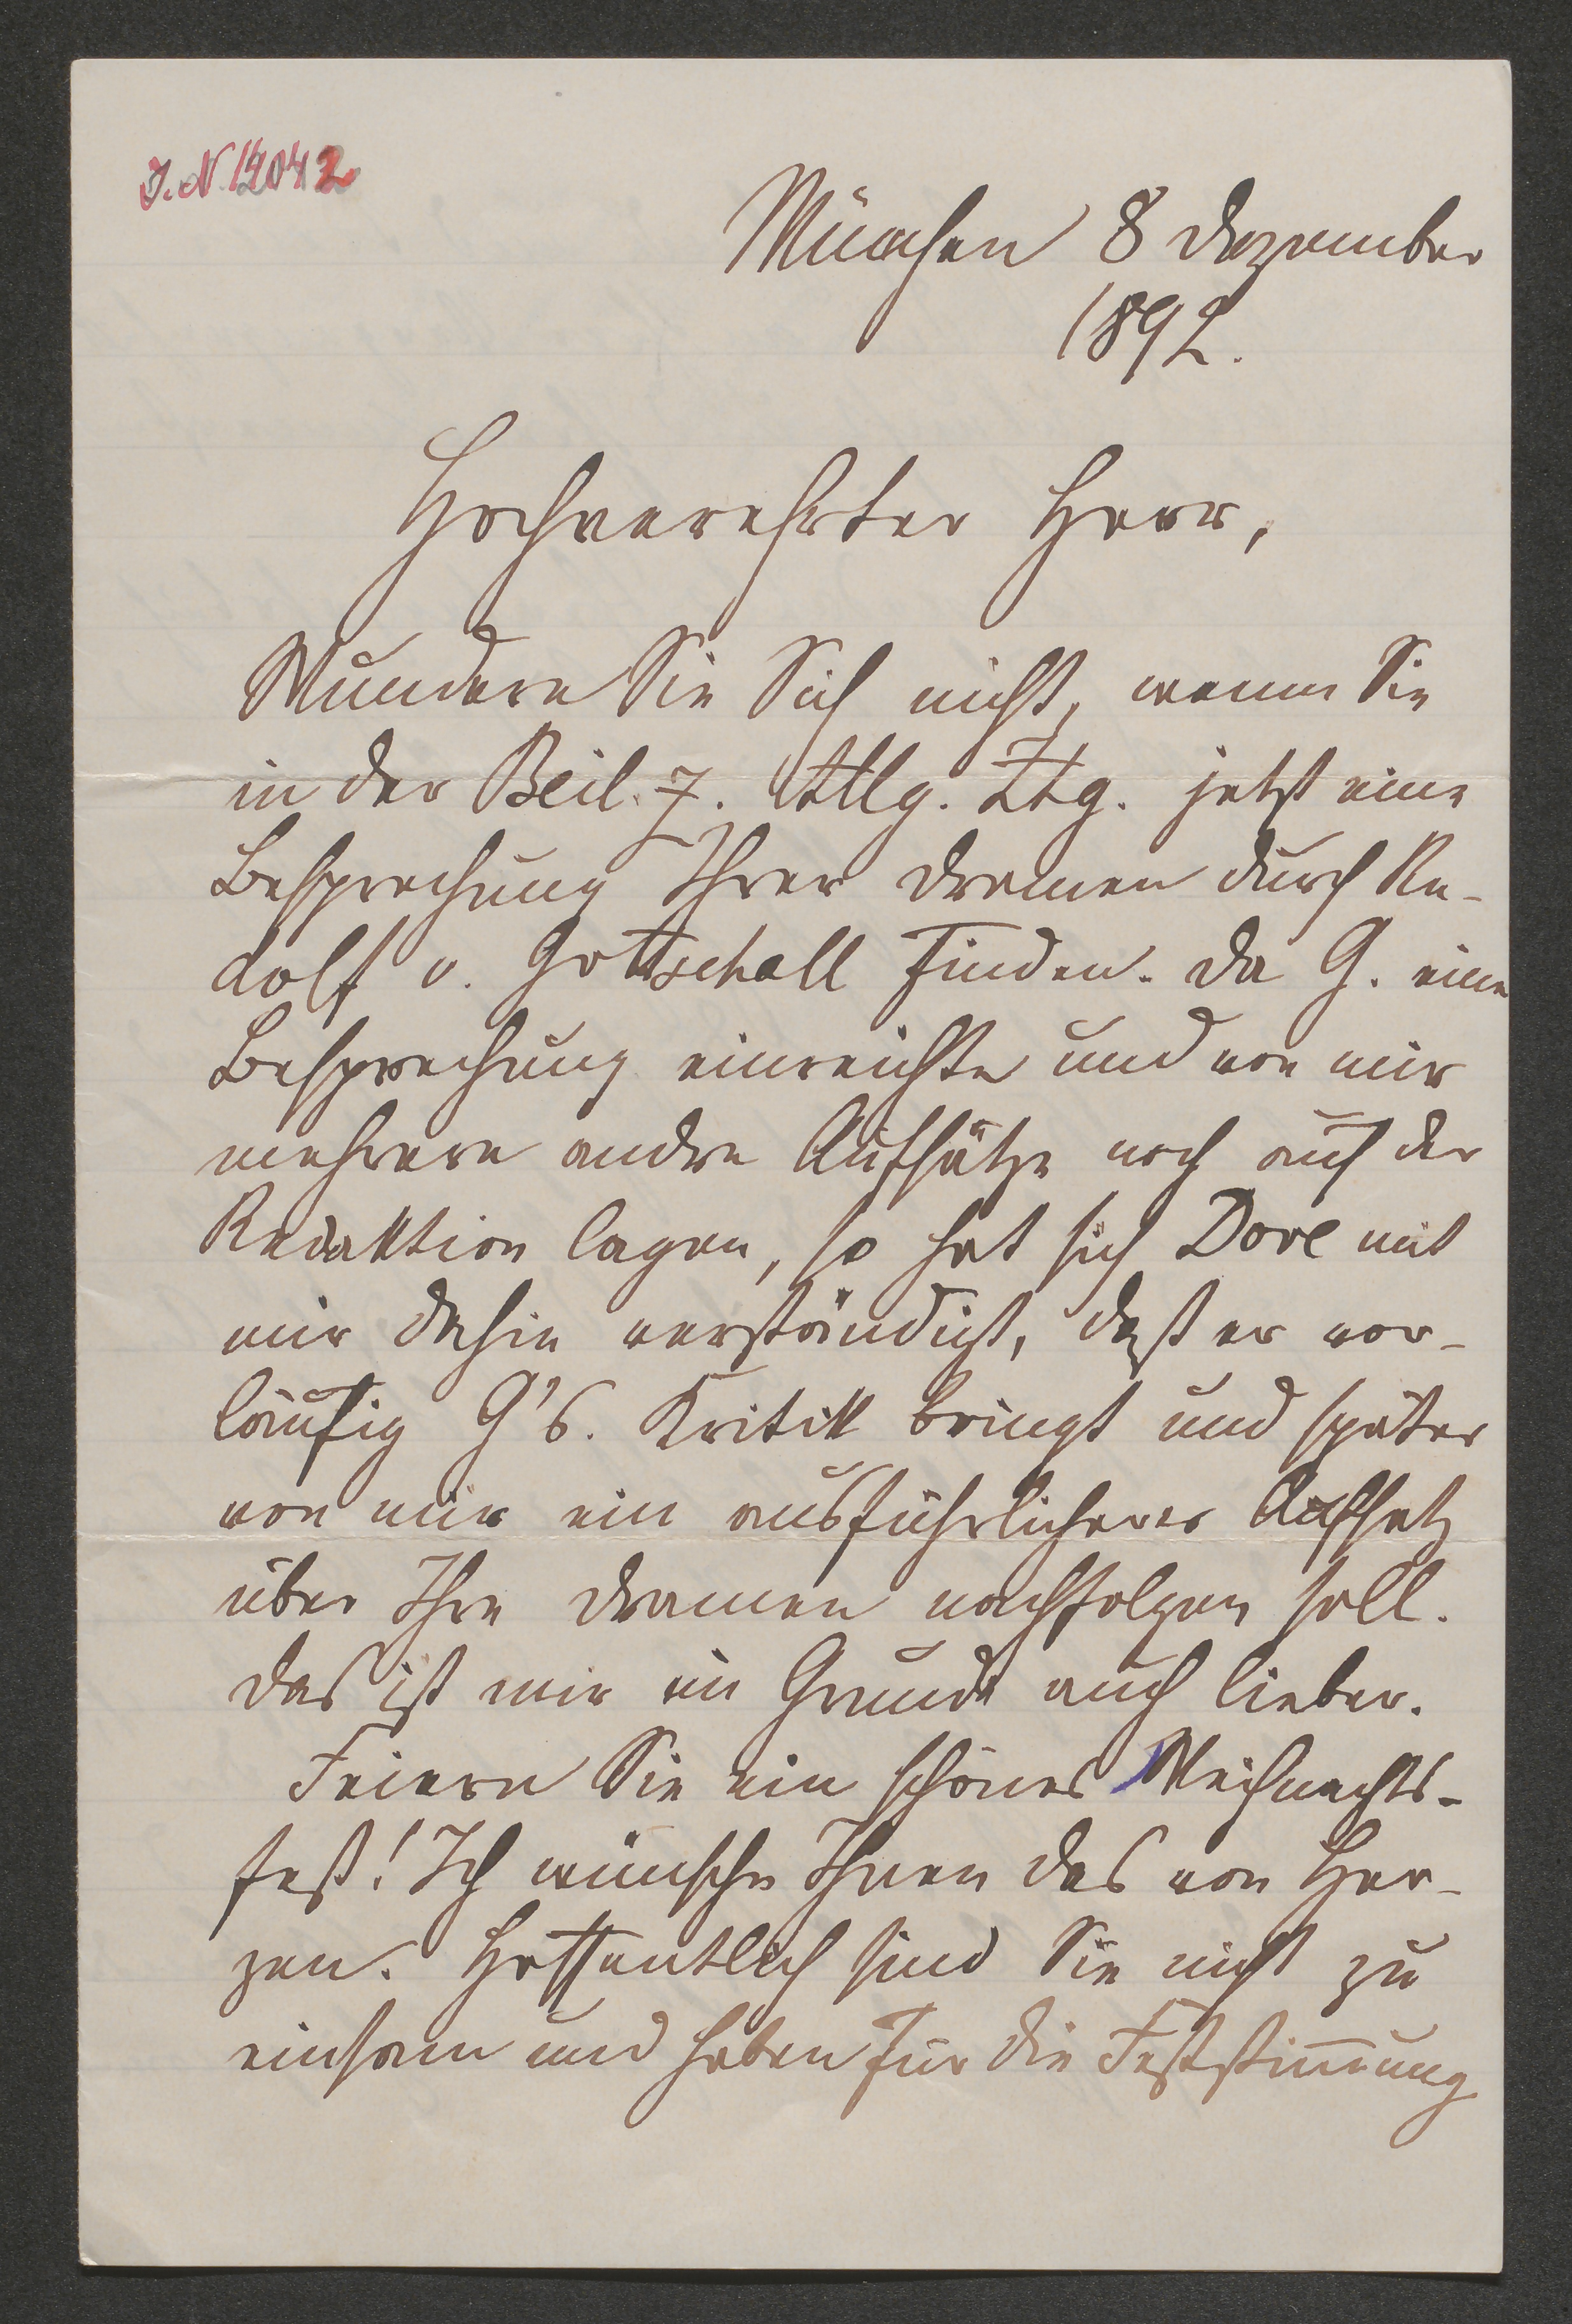 J.N. 12042
München 8 Dezember
1892.
Hochverehrter Herr,
Wundern Sie Sich nicht, wenn Sie
in der Beil. z. Allg. Ztg. jetzt eine
Besprechung Ihrer Dramen durch Ru-
dolf v. Gottschall finden. Da G. eine
Besprechung einreichte und von mir
mehrere andre Aufsätze noch auf der
Redaktion lagen, so hat sich Dove mit
mir dahin verständigt, daß er vor-
läufig G's. Kritik bringt und später
von mir ein ausführlicherer Aufsatz
über Ihre Dramen nachfolgen soll.
Das ist mir im Grunde auch lieber.
Feiern Sie ein schönes Weihnachts-
fest! Ich wünsche Ihnen das von Her-
zen. Hoffentlich sind Sie nicht zu
einsam und haben für die Feststimmung